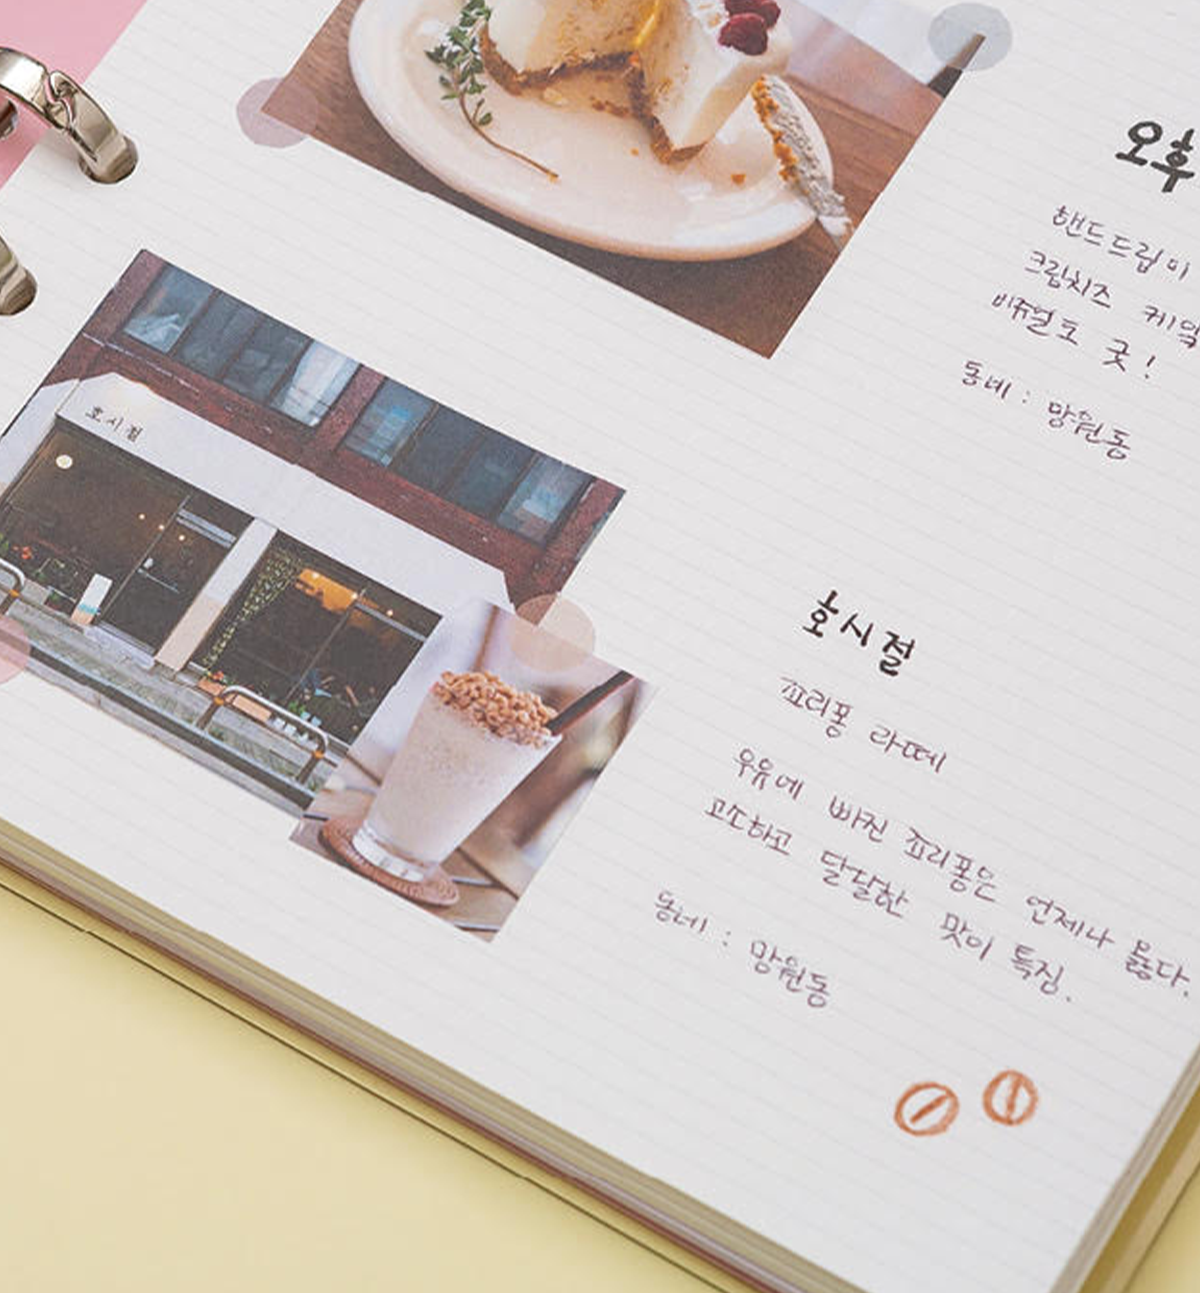 오후
핸드드립이
크림치즈 케익
비쥬얼도 굿!
동네 : 망원동
호시절
호시절
죠리퐁 라떼
우유에 빠진 죠리퐁은 언제나 옳다.
고소하고 달달한 맛이 특징.
동네 : 망원동